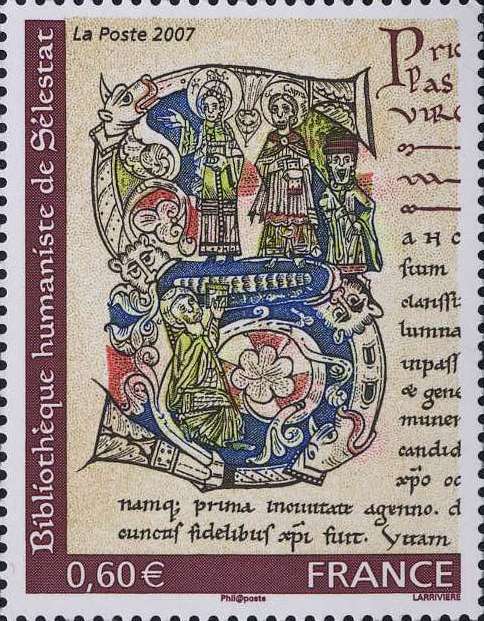 La Poste 2007
Bibliothèque humaniste de Sélestat
Pric
pas
VIRG
A H C
fuum
clarissi
lumna
inpass
& gene
munen
candid
xp̄o oc
namq; prima inouitate agenno. d
cunctis fidelibus xp̄i fuit. Vitam
0,60 €
FRANCE
Phil@poste
LARRIVIÈRE